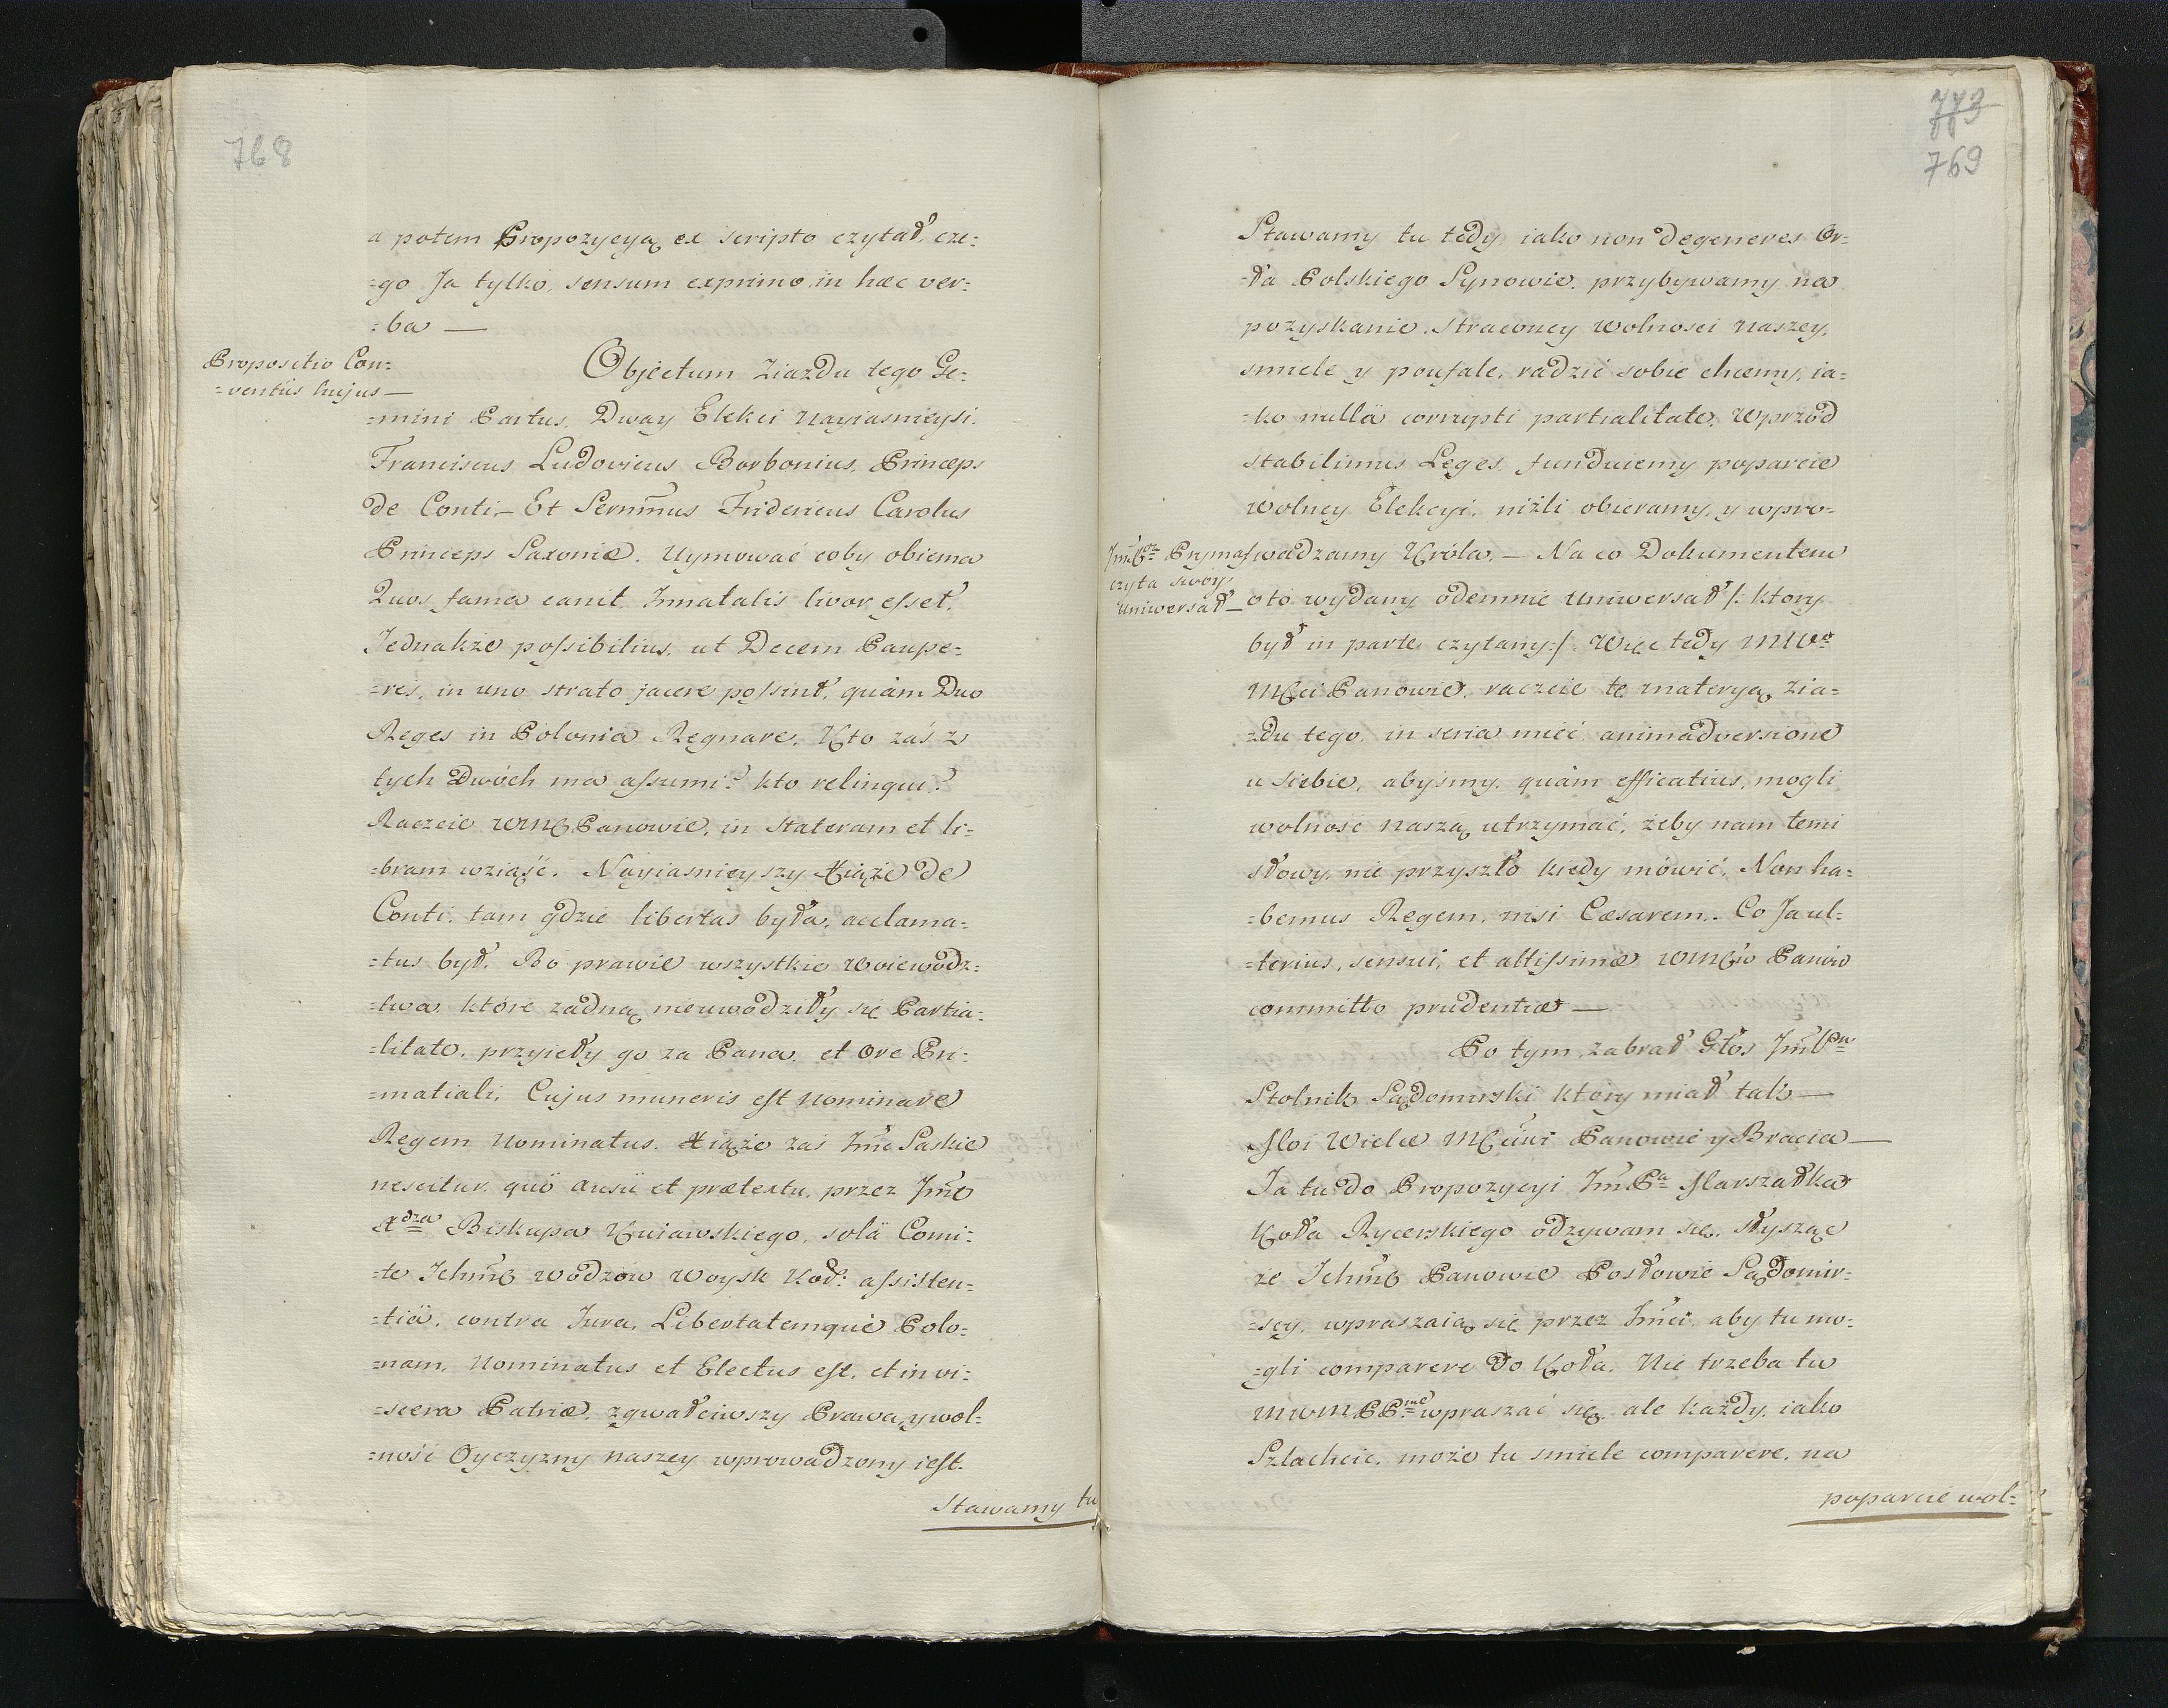 768
a potem Propozycyą ex scripto czytał, cze=
=go Ja tylko, sensum exprimo in hæc ver=
=ba —
Propositio Con=
=ventûs hujus —
Objectum Ziazdu tego Ge=
=mini Partus, Dway Elekci Nayiasnieysi.
Franciscus Ludovicus Borbonius, Princeps
de Conti, — Et Sernm̃us Fridericus Carolus
Princeps Saxoniæ. Uymować coby obiema
Quos fama canit Innatalis livor esset,
Jednakże possibilius, ut Decem Paupe=
=res, in uno strato jacere possint, quàm Duo
Reges in Polonia Regnare. Kto zaś z
tych Dwóch ma assumi? kto relinqui?
Raczcie WMć Panowie, in stateram et li=
=bram wziąść. Nayiasnieyszy Xiąże de
Conti, tam gdzie libertas była, acclama=
=tus był. Bo prawie wszystkie Woiewódz=
=twa które żadną nieuwodziły się Partia=
=litate, przyieły go za Pana, et ore Pri=
=matiali, Cujus muneris est Nominare
Regem Nominatus. Xiąże zas Jmć Saskie
nescitur, quô ausû et prætextu, przez Jmć
Xdza Biskupa Kuiawskiego, solâ Comi=
=te Ichmć Wodzow Woysk Kor: assisten=
=tiâ, contra Jura, Libertatemque Polo=
=nam, Nominatus et Electus est, et in vi=
=scera Patriæ, zgwałciwszy Prawa, y wol=
=ność Oyczyzny naszey wprowadzony iest.
Stawamy tu
773
769
Stawamy tu tedy, iako non degeneres Or=
=ła Polskiego Synowie, przybywamy na
pozyskanie straconey Wolnosci Naszey,
smiele y poufale, radzić sobie chcemy, ia=
=ko nullâ corrupti partialitate. Wprzód
stabilimus Leges, funduiemy poparcie
wolney Elekcyi, niżli obieramy, y wpro=
JmćX Prymas
czyta swoy
Uniwersał —
wadzamy Króla. — Na co Dokumentem
oto wydany odemnie Uniwersał /: ktory
był in parte czytany :/ Więc tedy MWo
Mći Panowie, raczcie te materyą zia=
=zdu tego, in seria mieć animadversione
u siebie, abysmy, quàm efficatius, mogli
wolność naszą utrzymać, żeby nam temi
słowy, nie przyszło kiedy mówić, Non ha=
=bemus Regem, nisi Cæsarem. Co Ja ul=
=terius, sensui, et altissimæ WMćiw Panów
committo prudentiæ —
Po tym zabrał Głos JmćPan
Stolnik Sądomirski ktory miał tak —
Moi Wielce Mćiwi Panowie y Bracia —
Ja tu do Propozycyi JmPa Marszałka
Koła Rycerskiego odzywam się, słysząc
że Ichmć Panowie Posłowie Sądomir=
=scy, wpraszaią się przez Jmći, aby tu mo=
=gli comparere do Koła. Nie trzeba tu
MWMPPnie wpraszać się, ale każdy, iako
Szlachcic, może tu smiele comparere, na
poparcie wol=